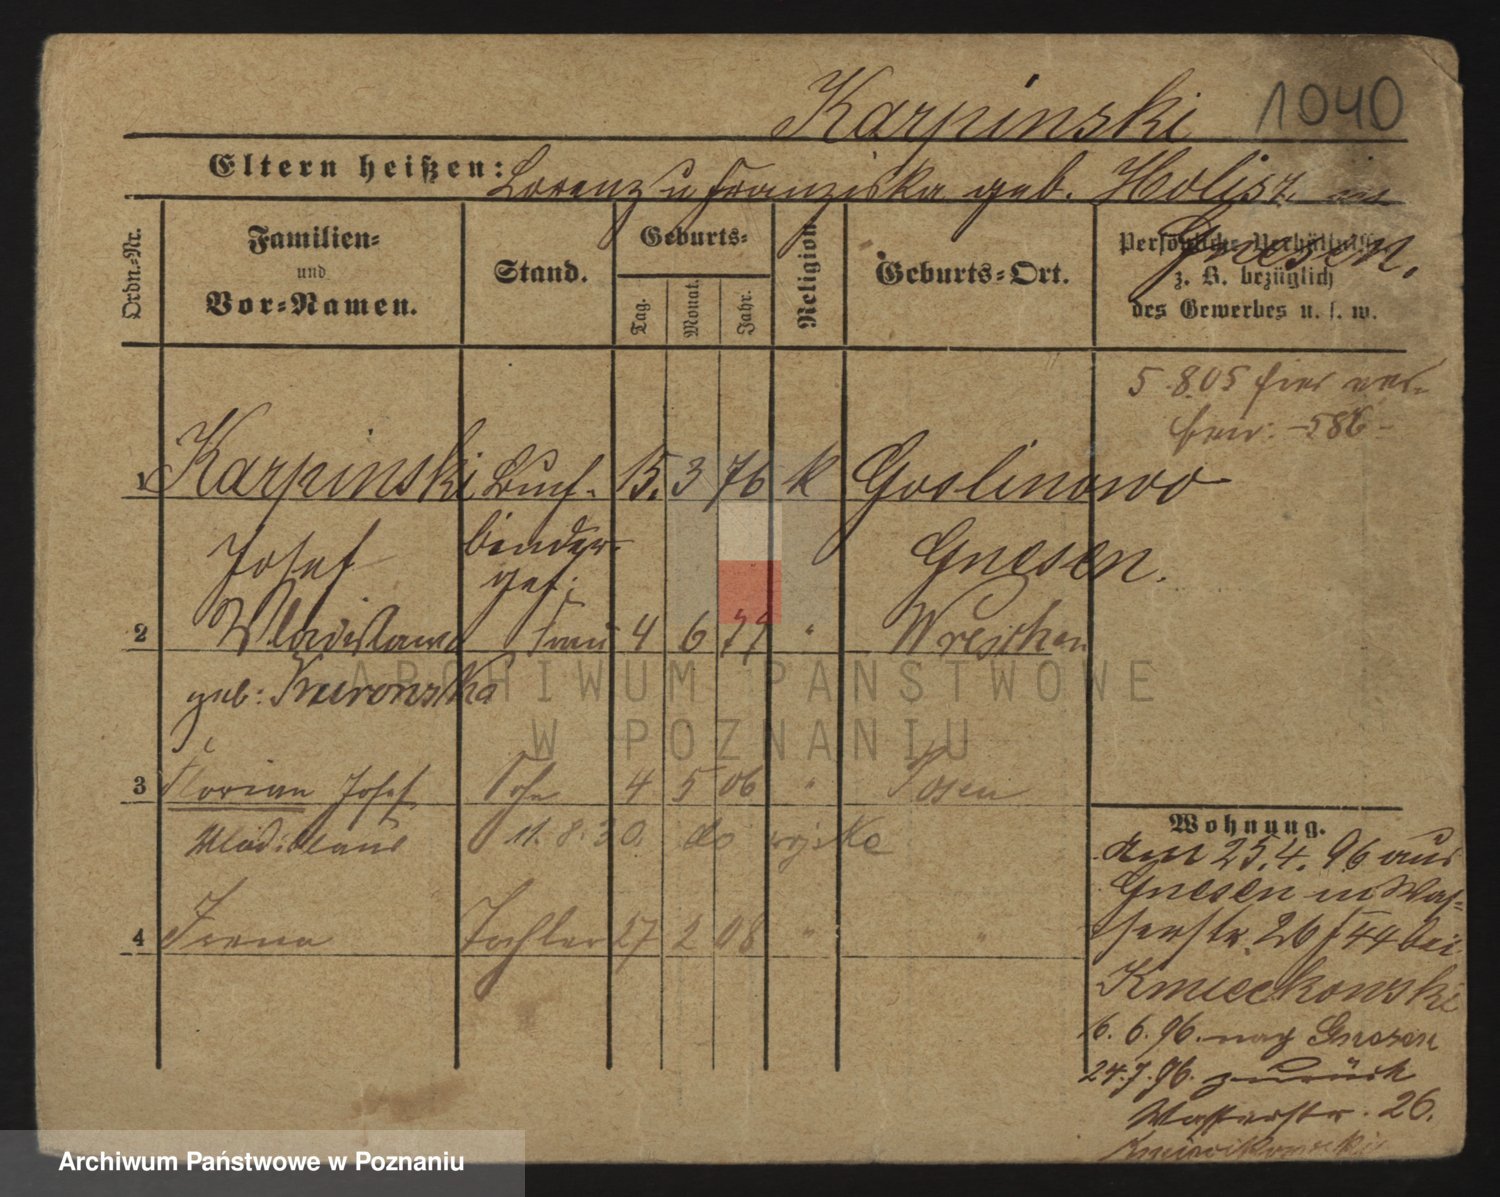 Karpinski 1040
Eltern heißen: Lorenz u Franziska geb. Holisz in
Gnesen.
Ordn.-Nr.
Familien-
und
Vor-Namen.
Stand.
Geburts-
Tag.
Monat.
Jahr.
Religion
Geburts-Ort.
Persönliche Verhältnisse
z. B. bezüglich
des Gewerbes u. s. w.
5.8.05 hier ver-
heir: -586-
1 Karpinski Buch- 15. 3 76 k Goslinowo
Josef binder- Gnesen.
ges:
2 Wladislawa Frau 4 6 77 " Wreschen
geb:
3 Florian Josef Sohn 4 5 06 " Posen
Wladislaus 11.8.30. do wojska
4 Irena Tochter 27 2 08 " "
Wohnung.
den 25.4.96 aus
Gnesen in Was-
serstr. 26 I 44 bei
Kmieckowski
6.6.96. nach Gnesen
24.7.96. zurück
Wasserstr. 26.
ARCHIWUM PAŃSTWOWE
W POZNANIU
Archiwum Państwowe w Poznaniu